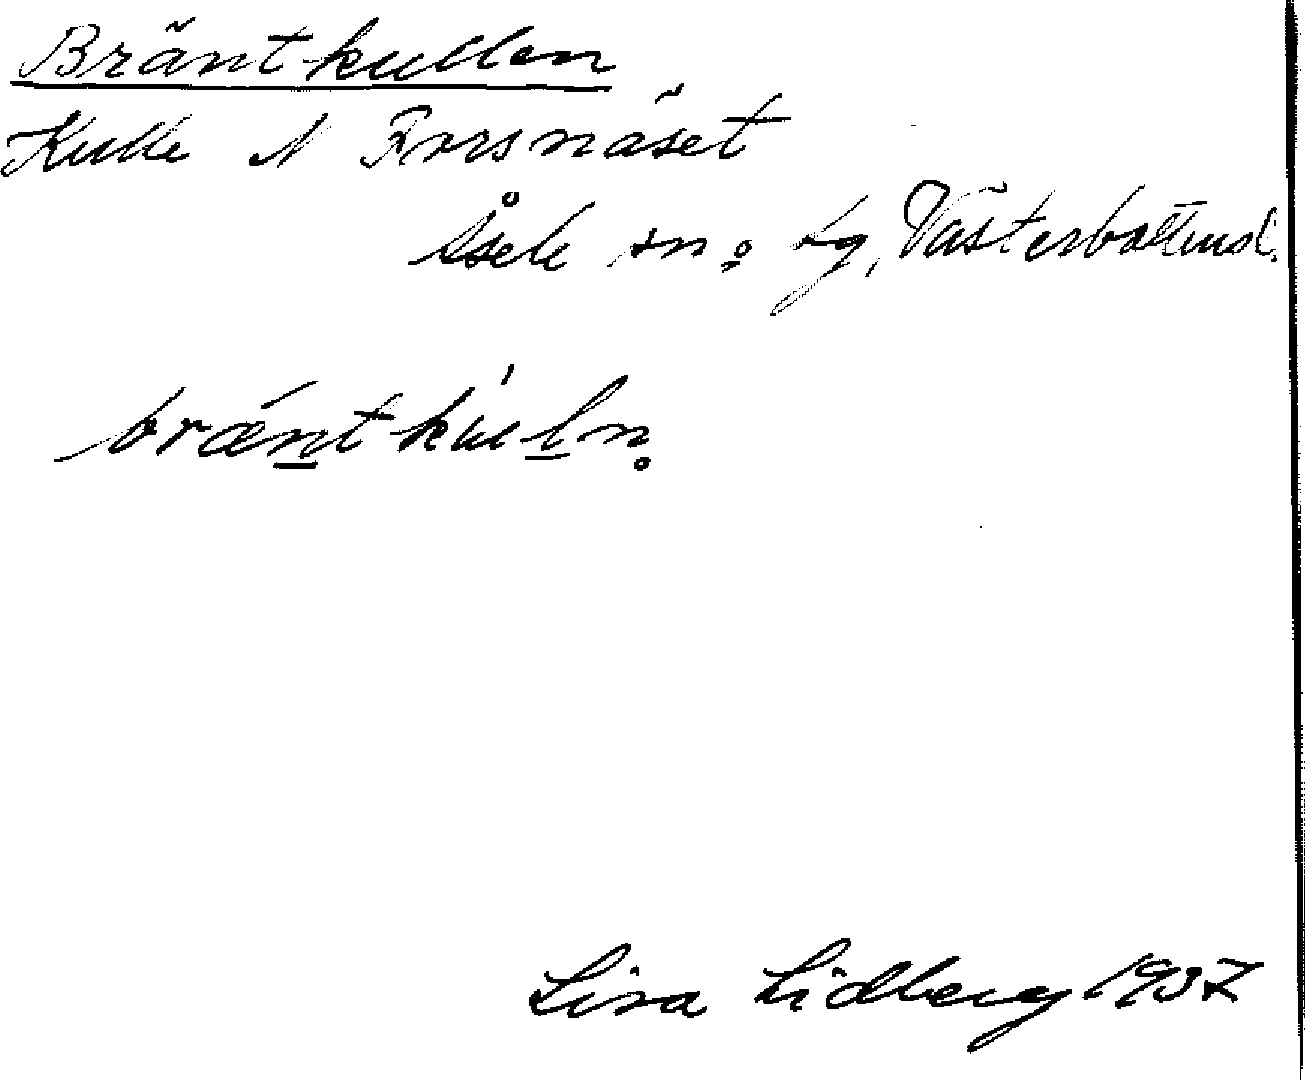 Bräntkullen
Kulle N Forsnäset
Åsele sn. o. lg, Västerbottens l.
brǽn̲t kùl̲n̥
Lisa Lidberg 1937